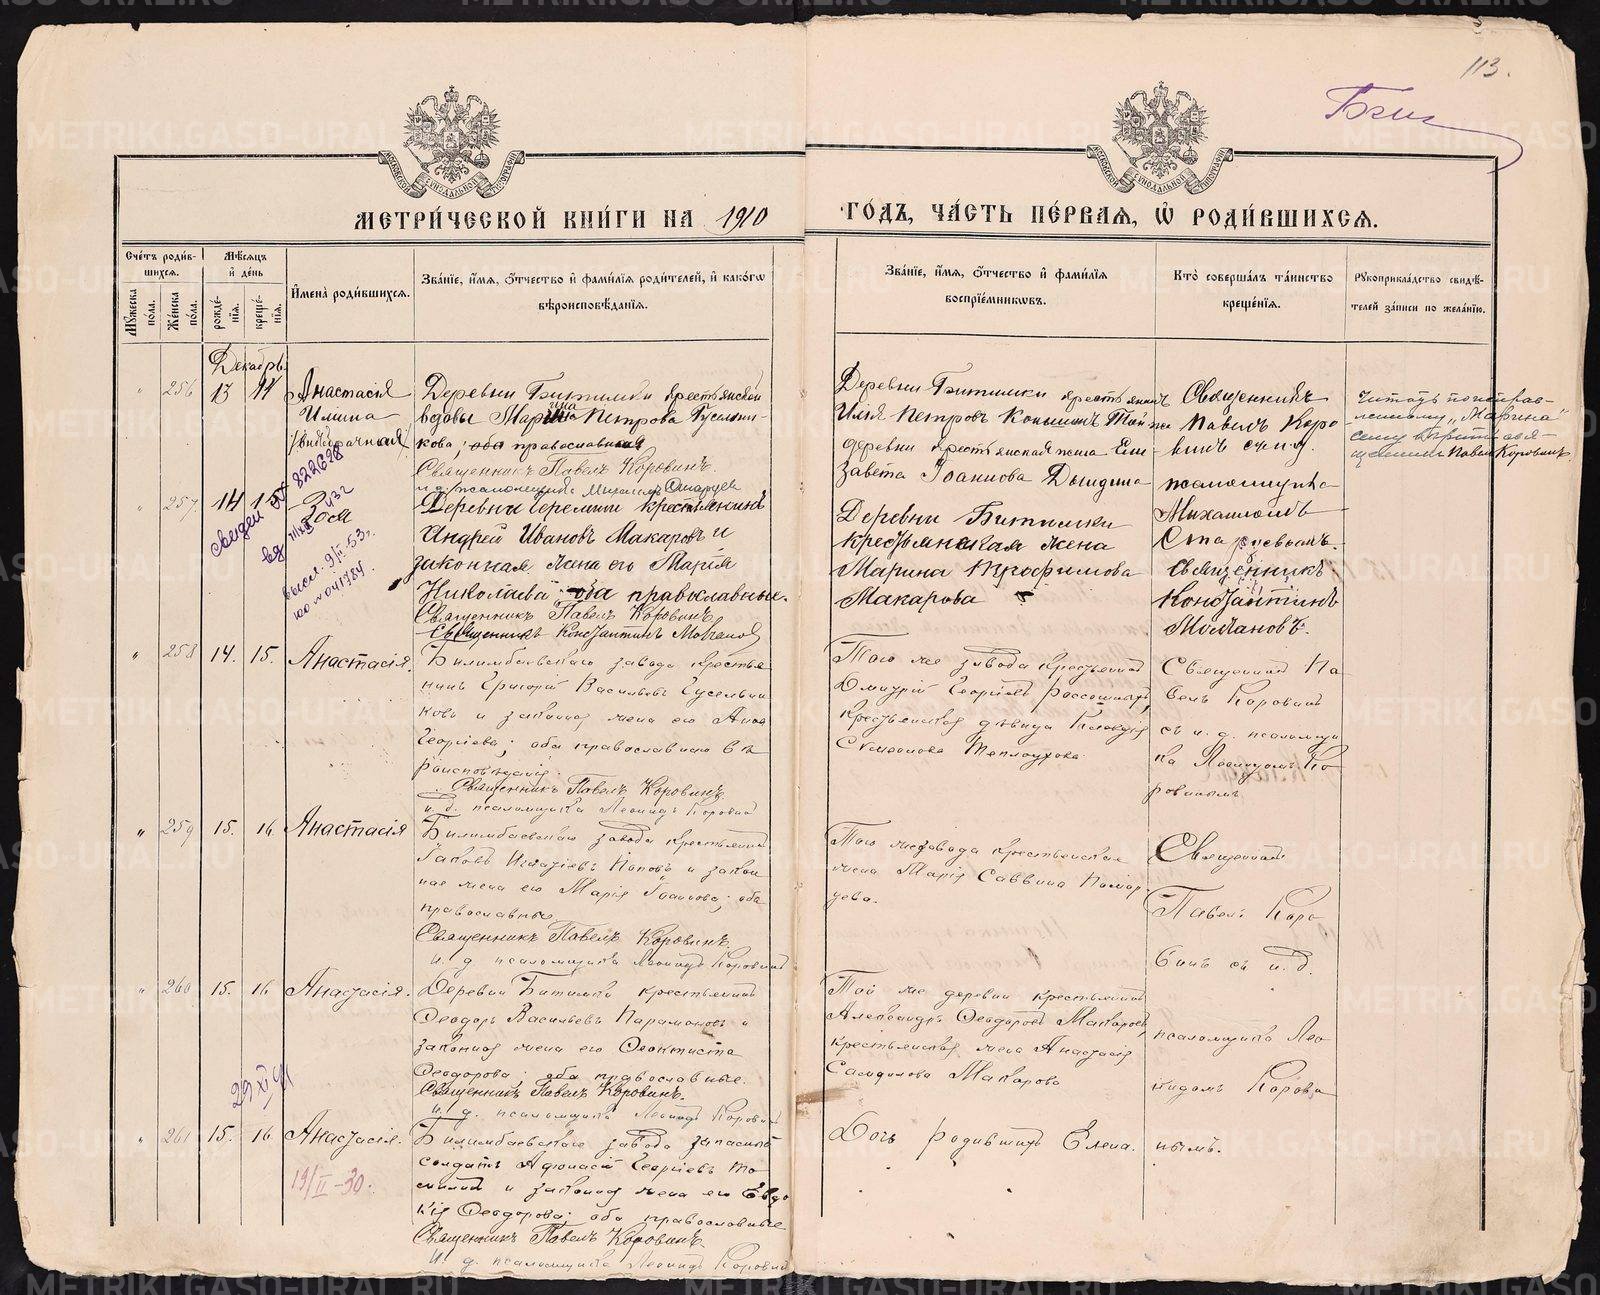 113.
МЕТРИЧЕСКОЙ КНИГИ НА 1910
ГОДЪ, ЧАСТЬ ПЕРВАЯ, Ѡ РОДИВШИХСѦ.
Счетъ родившихсѧ.
Мужеска пола.
Женска пола.
Мѣсѧцъ и день
рожденїѧ.
крещенїѧ.
Имена родившихсѧ.
Званїе, имѧ, ѻтчество и фамилїѧ родителей, и какогѡ
вѣроисповѣданїѧ.
Званїе, имѧ, ѻтчество и фамилїѧ
воспрїемниковъ.
Кто совершалъ таинство
крещенїѧ.
Рукоприкладство свидѣ-
телей записи по желанїю.
Декабрь.
" 256 13 14 Анастасія
Илина
/внѣбрачная/
Деревни Битимки крестьянской
вдовы Марина Петрова Гусельни-
кова, православная
Священникъ Павелъ Коровинъ.
и. д. псаломщика Михаилъ Старцев
Деревни Битимки крестьянинъ
Илія Петровъ Коньшинъ Той же
деревни крестьянская жена Ели-
завета Іоаннова
Священникъ
Павелъ Коро
винъ съ и. д.
псаломщика
Михаиломъ
Читать по исправ-
ленному "Марина"
Священникъ Павелъ Коровинъ
" 257 14 15 Зоя
Деревни Черемши крестьянинъ
Андрей Ивановъ Макаровъ и
законная жена его Марія
Николаева оба православные.
Священникъ Павелъ Коровинъ
Священникъ Константинъ Молчановъ
Деревни Битимки
крестьянская жена
Марина Трофимова
Макарова
Священникъ
Константинъ
Молчановъ.
свидет 822628
высл. 9/II-53г.
юо № 041784.
" 258 14. 15. Анастасія.
Билимбаевскаго завода крестья
нинъ Григорій Васильевъ Гусельни
ковъ и законная жена его Анна
Георгіева; оба православнаго вѣ
роисповѣданія.
Священникъ Павелъ Коровинъ.
и. д. псаломщика Леонидъ Коровинъ
Того же завода крестьянинъ
Дмитрій Георгіевъ
крестьянская дѣвица Клавдія
Симеонова Теплоухова
Священникъ Па
велъ Коровинъ
съ и. д. псаломщи
ка Леонидомъ Ко
ровинымъ
" 259 15. 16. Анастасія
Билимбаевскаго завода крестьянинъ
Іаковъ Игнатіевъ Поповъ и закон
ная жена его Марія Іоаннова; оба
православные.
Священникъ Павелъ Коровинъ.
и. д. псаломщика Леонидъ Коровинъ
Того же завода крестьянская
жена Марія Саввина
Священникъ
Павелъ Коро
винъ съ и. д.
" 260 15. 16. Анастасія.
Деревни Битимки крестьянинъ
Ѳеодоръ Васильевъ Парамоновъ и
законная жена его Ѳеоктиста
Ѳеодорова; оба православные.
Священникъ Павелъ Коровинъ.
и. д. псаломщика Леонидъ Коровинъ
Той же деревни крестьянинъ
Александръ Ѳеодоровъ Макаровъ,
крестьянская жена Анастасія
Самуилова Макарова
псаломщика Лео
нидомъ Корови
" 261 15. 16. Анастасія.
19/II-30.
Билимбаевскаго завода запасный
солдатъ Аѳанасій Георгіевъ То
милинъ и законная жена его Евдо
кія Ѳеодорова; оба православные
Священникъ Павелъ Коровинъ.
и. д. псаломщика Леонидъ Коровинъ
Дочь родившихъ Елена.
нымъ.
METRIKI.GASO-URAL.RU